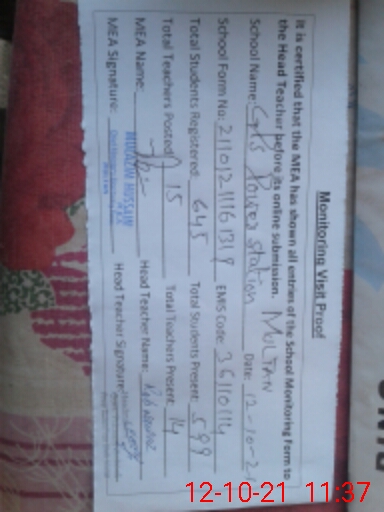 Monitoring Visit Proof
It is certified that the MEA has shown all entries of the School Monitoring Form to
the Head Teacher before its online submission. MULTAN
School Name: GPS Power Station Date: 12-10-21
School Form No: EMIS Code: 36110114
Total Students Registered: 645 Total Students Present: 599
Total Teachers Posted: 15 Total Teachers Present: 14
MEA Name: HUSSAIN Head Teacher Name:
MEA Signature: Head Teacher Signature:
12-10-21 11:37